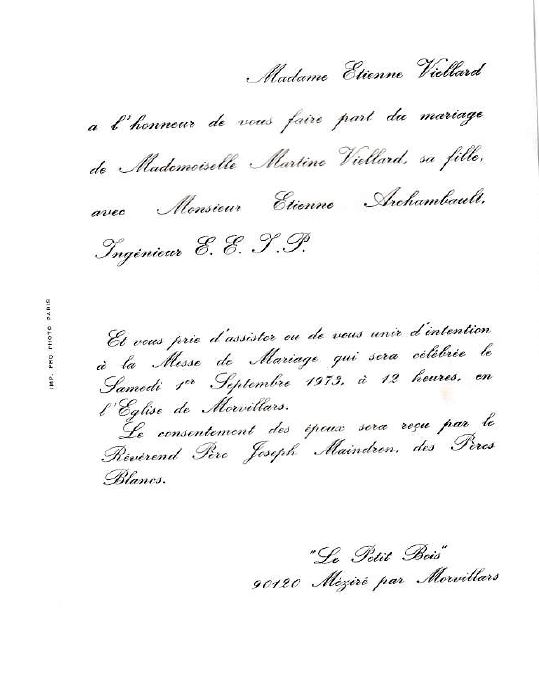 Madame Etienne Viellard
a l'honneur de vous faire part du mariage
de Mademoiselle Martine Viellard, sa fille,
avec Monsieur Etienne Archambault,
Ingénieur E. E. I. P.
IMP. PRO PHOTO PARIS
Et vous prie d'assister ou de vous unir d'intention
à la Messe de Mariage qui sera célébrée le
Samedi 1er Septembre 1973, à 12 heures, en
l'Eglise de Morvillars.
Le consentement des époux sera reçu par le
Révérend Père Joseph Maindron, des Pères
Blancs.
"Le Petit Bois"
90120 Méziré par Morvillars